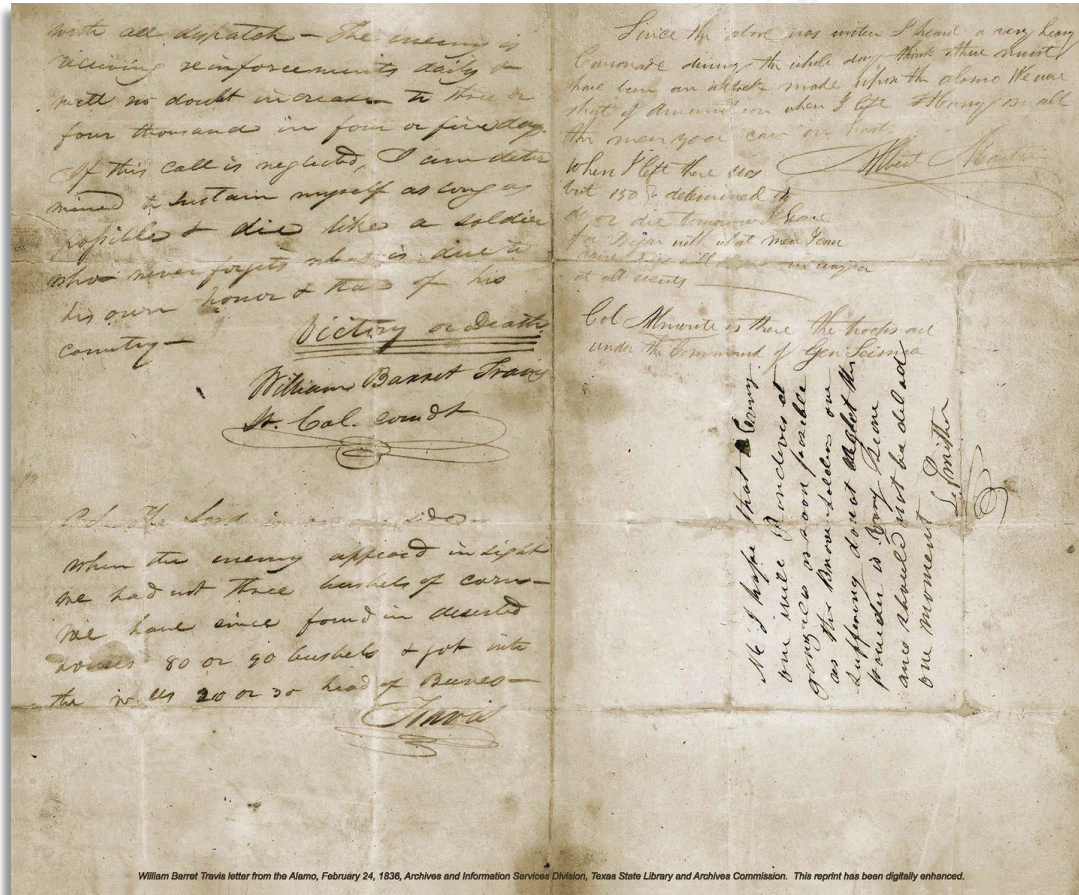 with all dispatch — The enemy is
receiving reinforcements daily &
will no doubt increase to three or
four thousand in four or five days.
If this call is neglected, I am deter
mined to sustain myself as long as
possible & die like a soldier
who never forgets what is due to
his own honor & that of his
country —
Victory or Death
William Barret Travis
Lt. Col. comdt
P.S. The Lord is on our side —
When the enemy appeard in sight
we had not three bushels of corn —
We have since found in deserted
houses 80 or 90 bushels & got into
the walls 20 or 30 head of Beeves —
Travis
Since the above was writen I heard a very heavy
Canonade during the whole day think there must
have been an attack made upon the alamo We were
short of Amunition when I left Hurry on all
the men you can in haste
Albert Martin
When I left there was
but 150 determined to
do or die tomorrow I leave
for Bejar with what men I can
at all events
Col Almonte is there the troops are
under the Command of Gen Seisma
Nb I hope that Every
one will Randeves at
gonzales as soon posible
as the Brave Soldiers are
suffering do not neglect the
powder is very scarce
and should not be delad
one moment
L. Smither
William Barret Travis letter from the Alamo, February 24, 1836, Archives and Information Services Division, Texas State Library and Archives Commission. This reprint has been digitally enhanced.